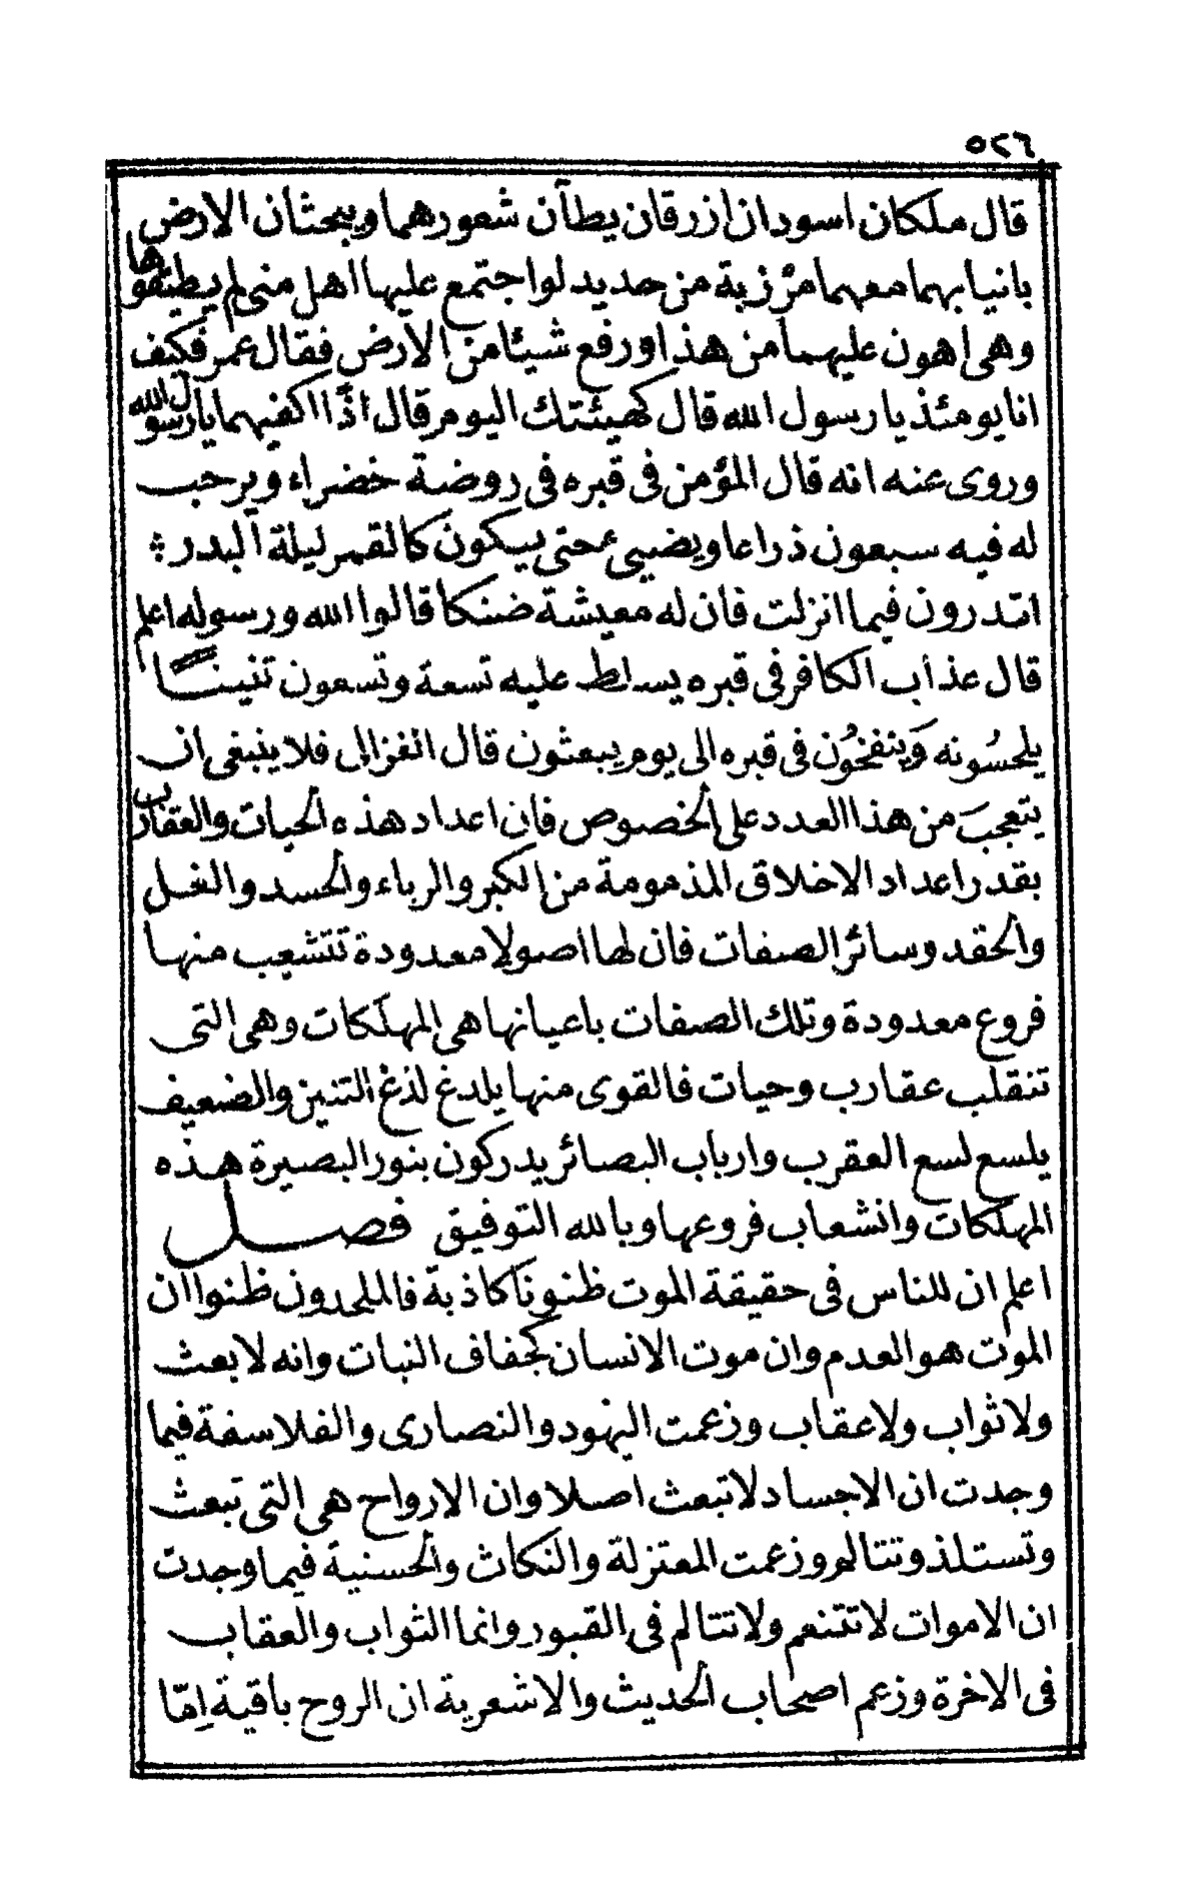 ٥٢٦
قال ملكان اسودان ازرقان يطآن شعورهما ويبحثان الارض
بانيابهما معهما مرزبة من حديد لو اجتمع عليها اهل منى لم يطيقوها
وهى اهون عليهما من هذا ورفع شيئا من الارض فقال عمر فكيف
انا يومئذ يا رسول الله قال كهيئتك اليوم قال اذًا اكفيهما يا رسول الله
وروى عنه انه قال المؤمن فى قبره فى روضة خضراء ويرحب
له فيه سبعون ذراعا ويضيىء حتى يكون كالقمر ليلة البدر ؞
اتدرون فيما انزلت فان له معيشة ضنكا قالوا الله ورسوله اعلم
قال عذاب الكافر فى قبره يسلط عليه تسعة وتسعون تنينًا
يلحسُونه وَينفخُون فى قبره الى يوم يبعثون قال الغزالى فلا ينبغى ان
يتعجبَ من هذا العدد على الخصوص فان اعداد هذه الحيات والعقارب
بقدر اعداد الاخلاق المذمومة من الكبر والرياء والحسد والغل
والحقد وسائر الصفات فان لها اصولا معدودة تتشعب منها
فروع معدودة وتلك الصفات باعيانها هى المهلكات وهى التى
تنقلب عقارب وحيات فالقوى منها يلدغ لدغ التنين والضعيف
يلسع لسع العقرب وارباب البصائر يدركون بنور البصيرة هذه
المهلكات وانشعاب فروعها وبالله التوفيق فصل
اعلم ان للناس فى حقيقة الموت ظنونا كاذبة فالملحدون ظنوا ان
الموت هو العدم وان موت الانسان كجفاف النبات وانه لا بعث
ولا ثواب ولا عقاب وزعمت اليهود والنصارى والفلاسفة فيما
وجدت ان الاجساد لا تبعث اصلا وان الارواح هى التى تبعث
وتستلذ وتتالم وزعمت المعتزلة والنكاث والحسنية فيما وجدت
ان الاموات لا تتنعم ولا تتالم فى القبور وانما الثواب والعقاب
فى الاخرة وزعم اصحاب الحديث والاشعرية ان الروح باقية اِمّا